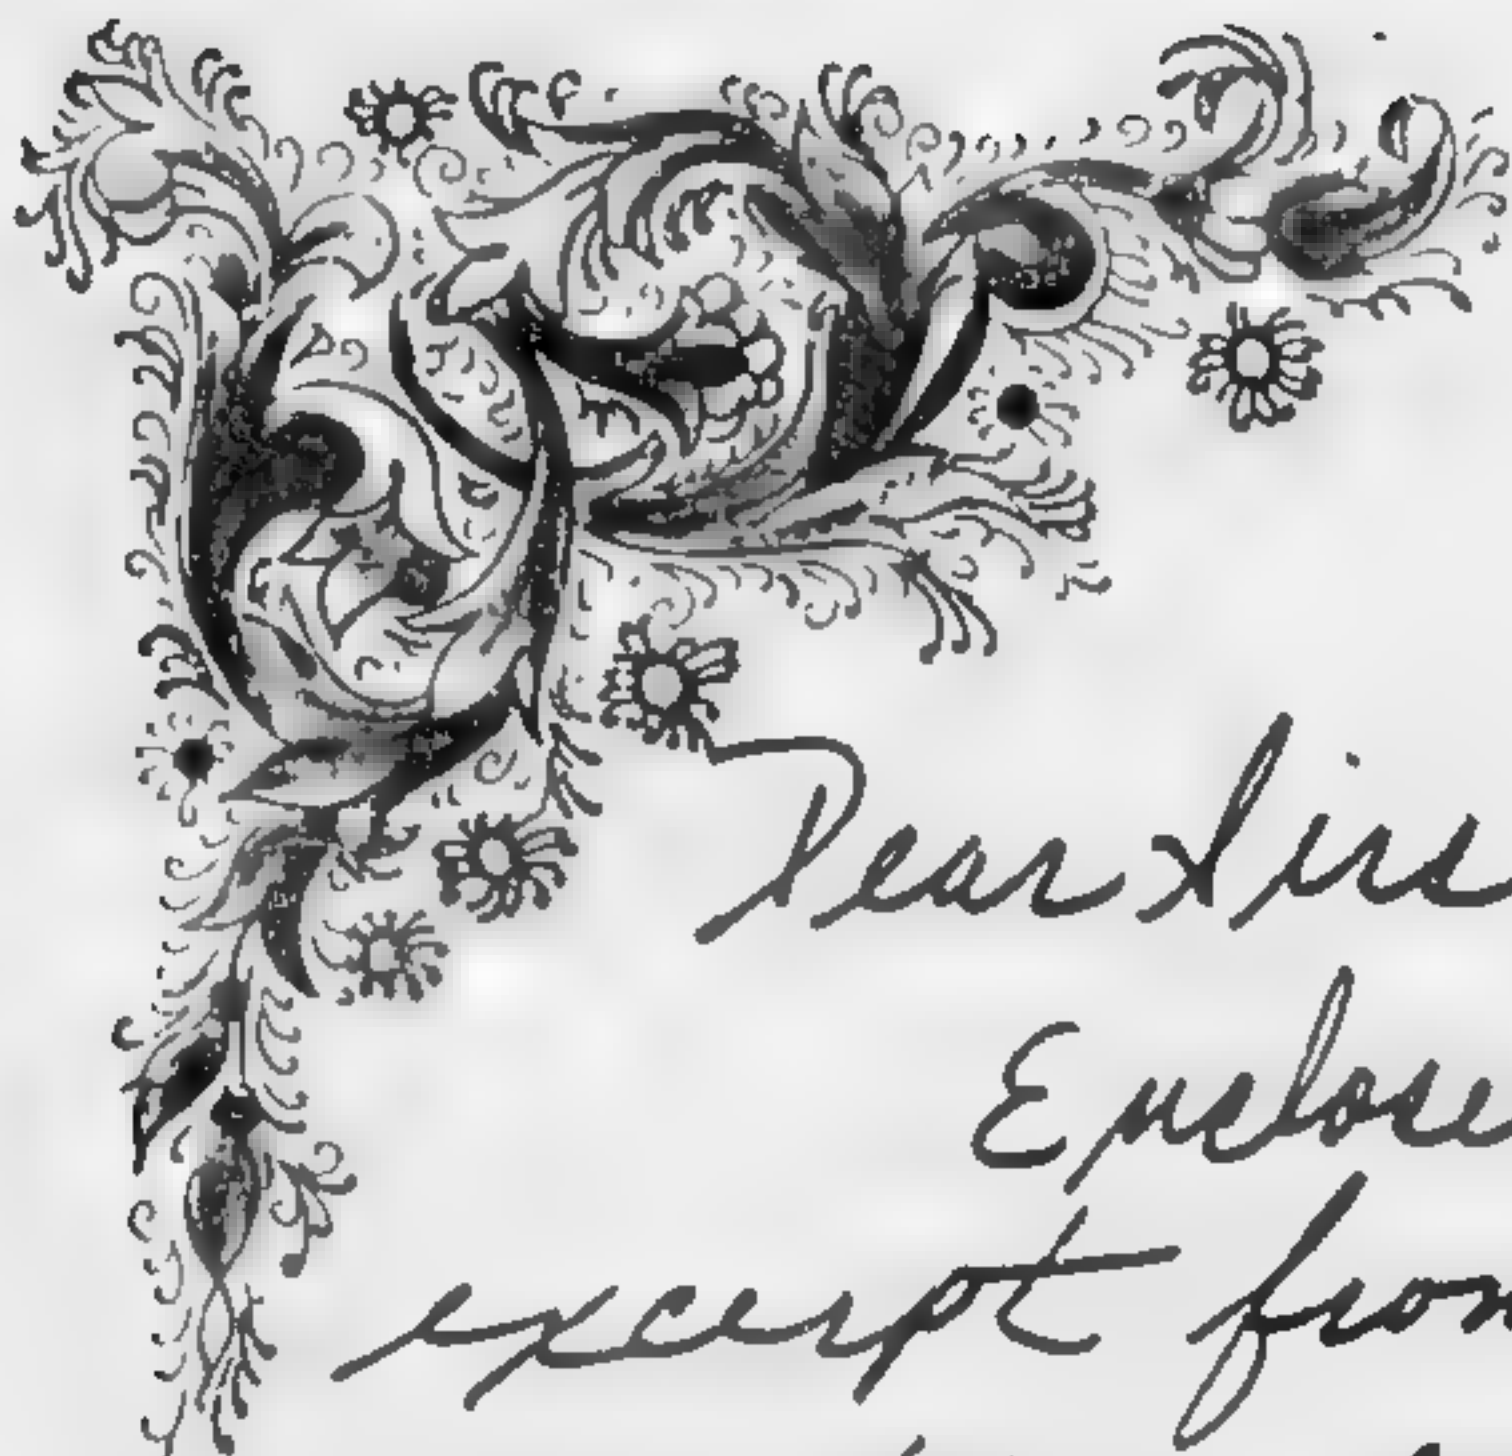 Dear Sirs
Enclose
excerpt from